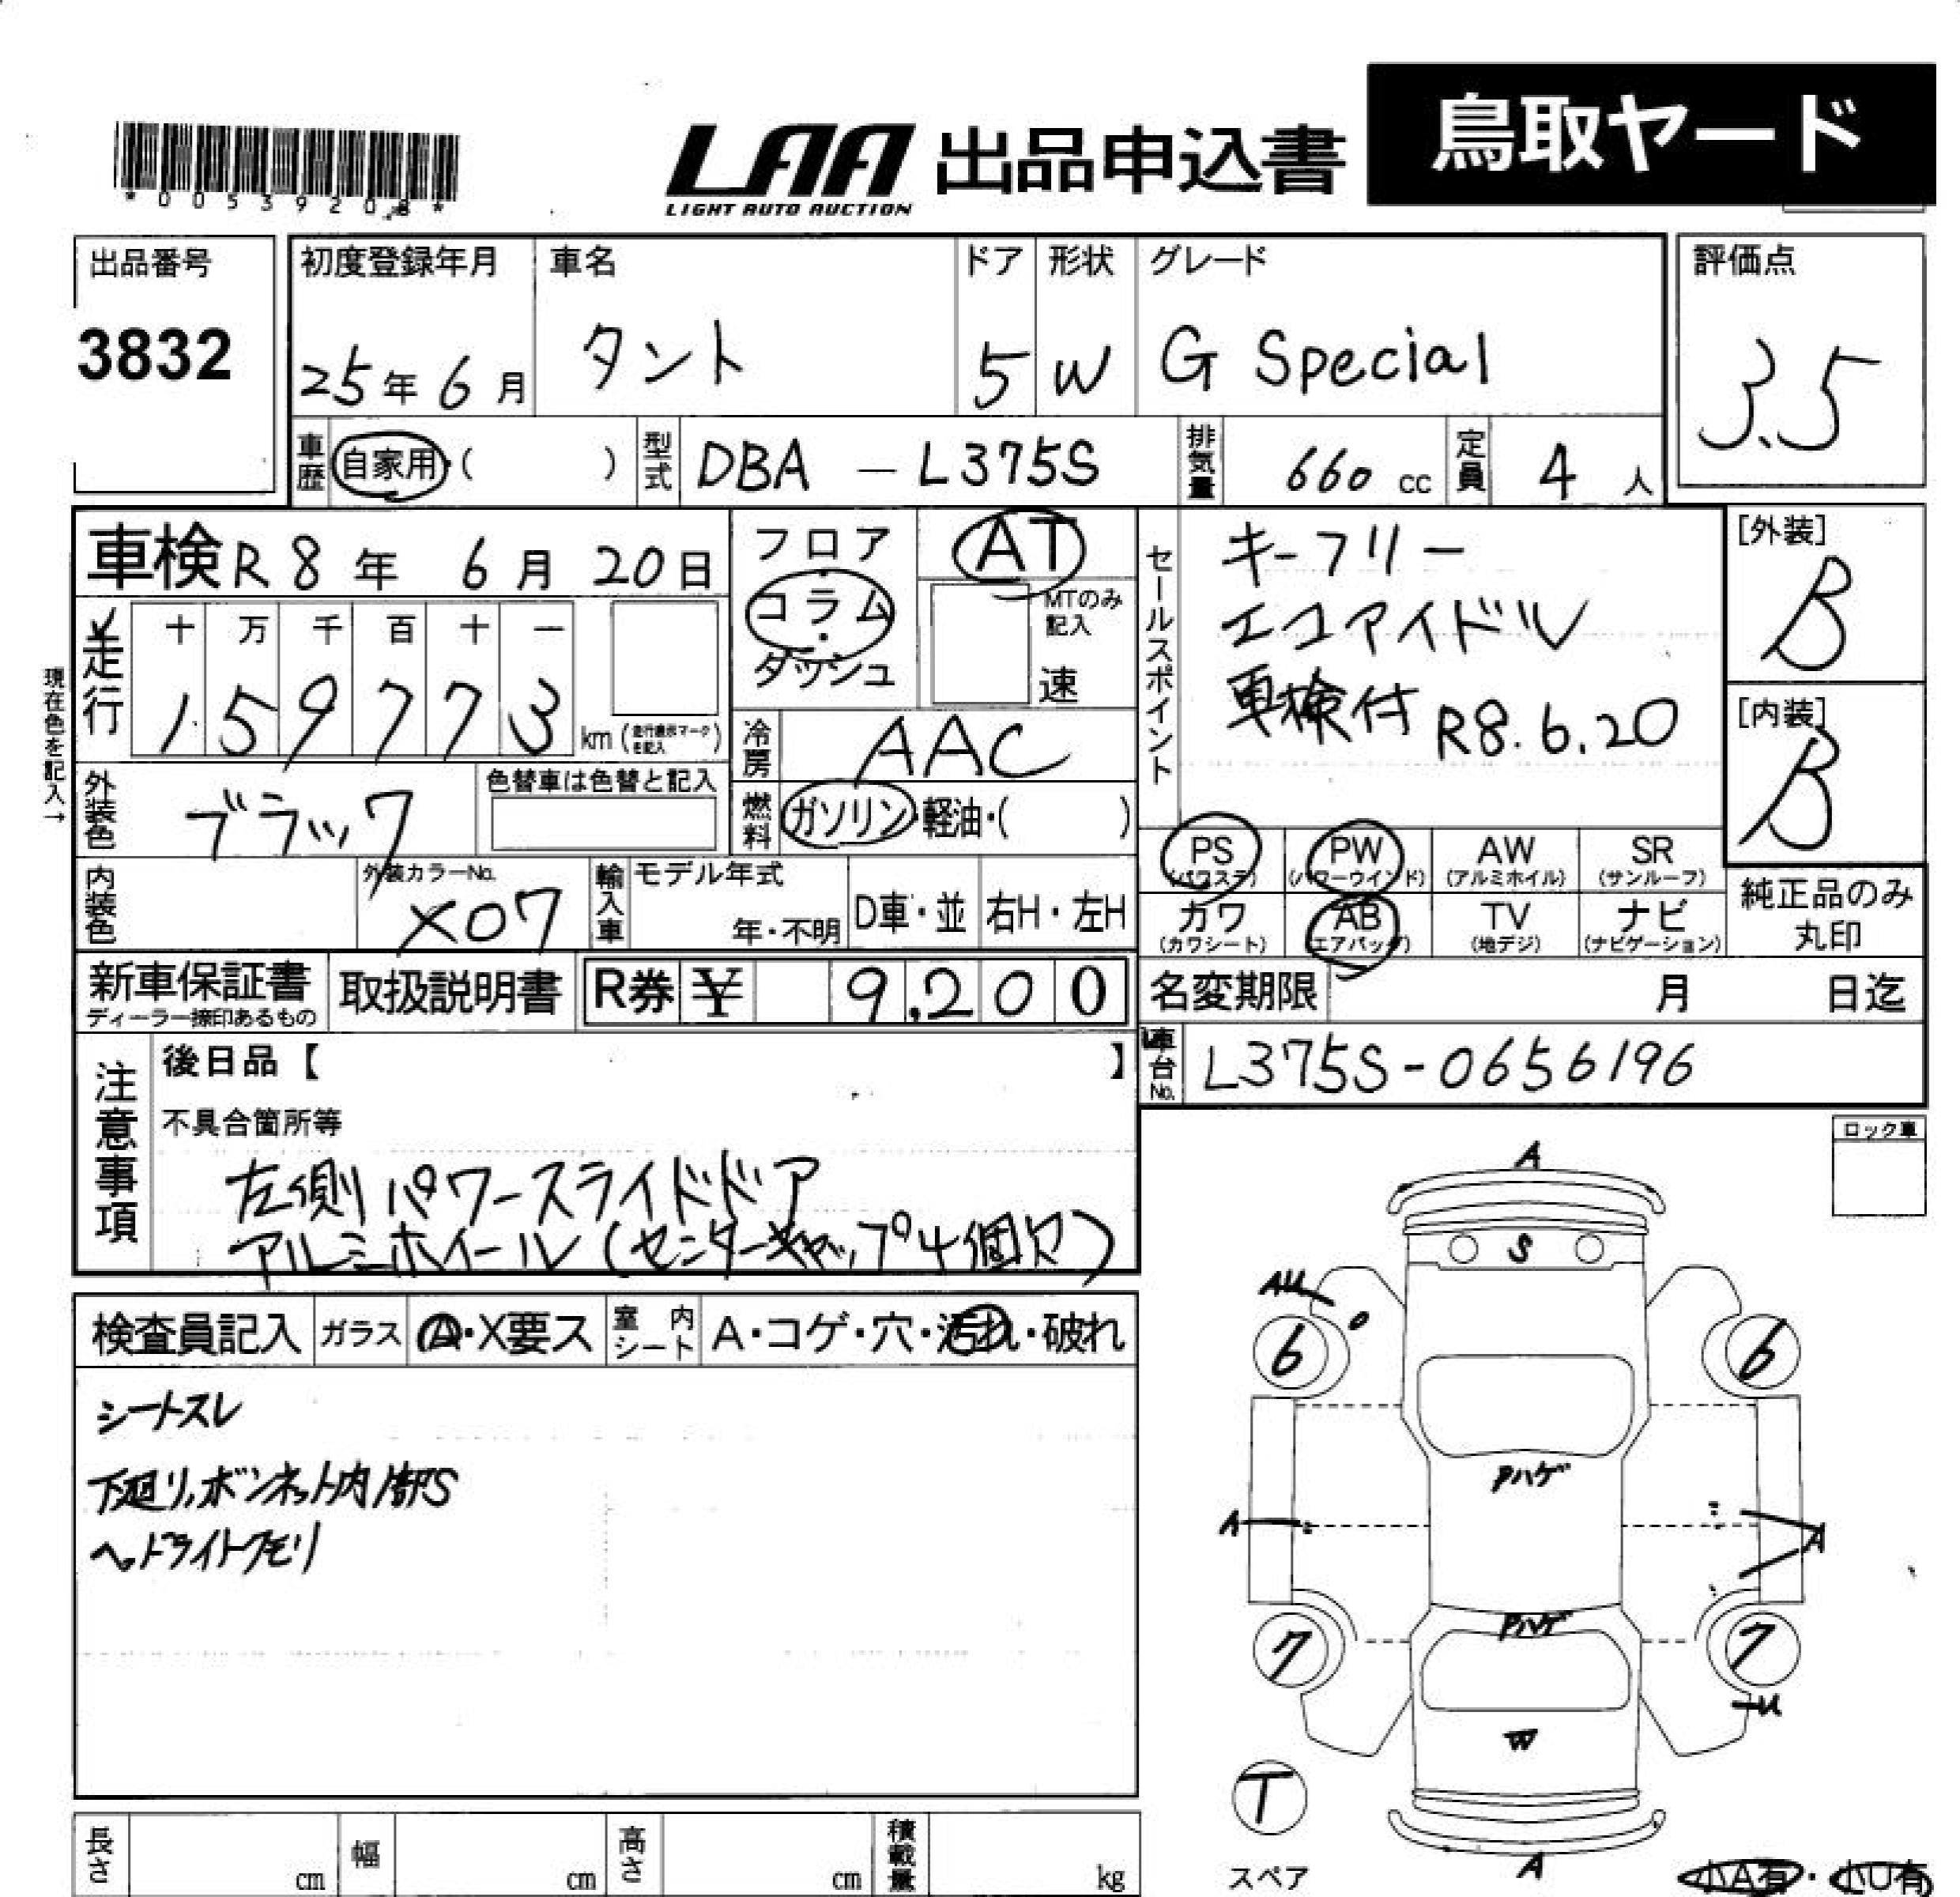 *00539208*
LAA 出品申込書 鳥取ヤード
LIGHT AUTO AUCTION
出品番号
3832
初度登録年月
25年6月
車名
タント
ドア
5
形状
W
グレード
G Special
評価点
3.5
車歴 自家用・( )
型式 DBA - L375S
排気量 660 cc
定員 4 人
車検 R8年 6月 20日
フロア・コラム・ダッシュ
AT
MTのみ記入
速
セールスポイント
キーフリー
エコアイドル
車検付 R8.6.20
[外装]
B
[内装]
B
走行
十 万 千 百 十 一
1 5 9 7 7 3 km (走行表示マークを記入)
現在色を記入→
冷房 AAC
外装色 ブラック
色替車は色替と記入
燃料 ガソリン・軽油・( )
内装色
外装カラーNo.
X07
輸入車
モデル年式
年・不明
D車・並
右H・左H
PS (パワステ)
PW (パワーウインド)
AW (アルミホイル)
SR (サンルーフ)
カワ (カワシート)
AB (エアバッグ)
TV (地デジ)
ナビ (ナビゲーション)
純正品のみ
丸印
新車保証書
ディーラー捺印あるもの
取扱説明書
R券 ¥ 9,200
名変期限 月 日迄
車台No. L375S-0656196
注意事項
後日品【 】
不具合箇所等
左側パワースライドドア
アルミホイール(センターキャップ4個欠)
ロック車
検査員記入
ガラス A・X要ス
室内シート A・コゲ・穴・汚れ・破れ
シートスレ
下廻り,ボンネット内部S
ヘッドライトクモリ
A
S
AU
6
6
Pハゲ
A
A
Pハゲ
7
7
U
W
T
スペア
A
小A有・小U有
長さ cm
幅 cm
高さ cm
積載量 kg